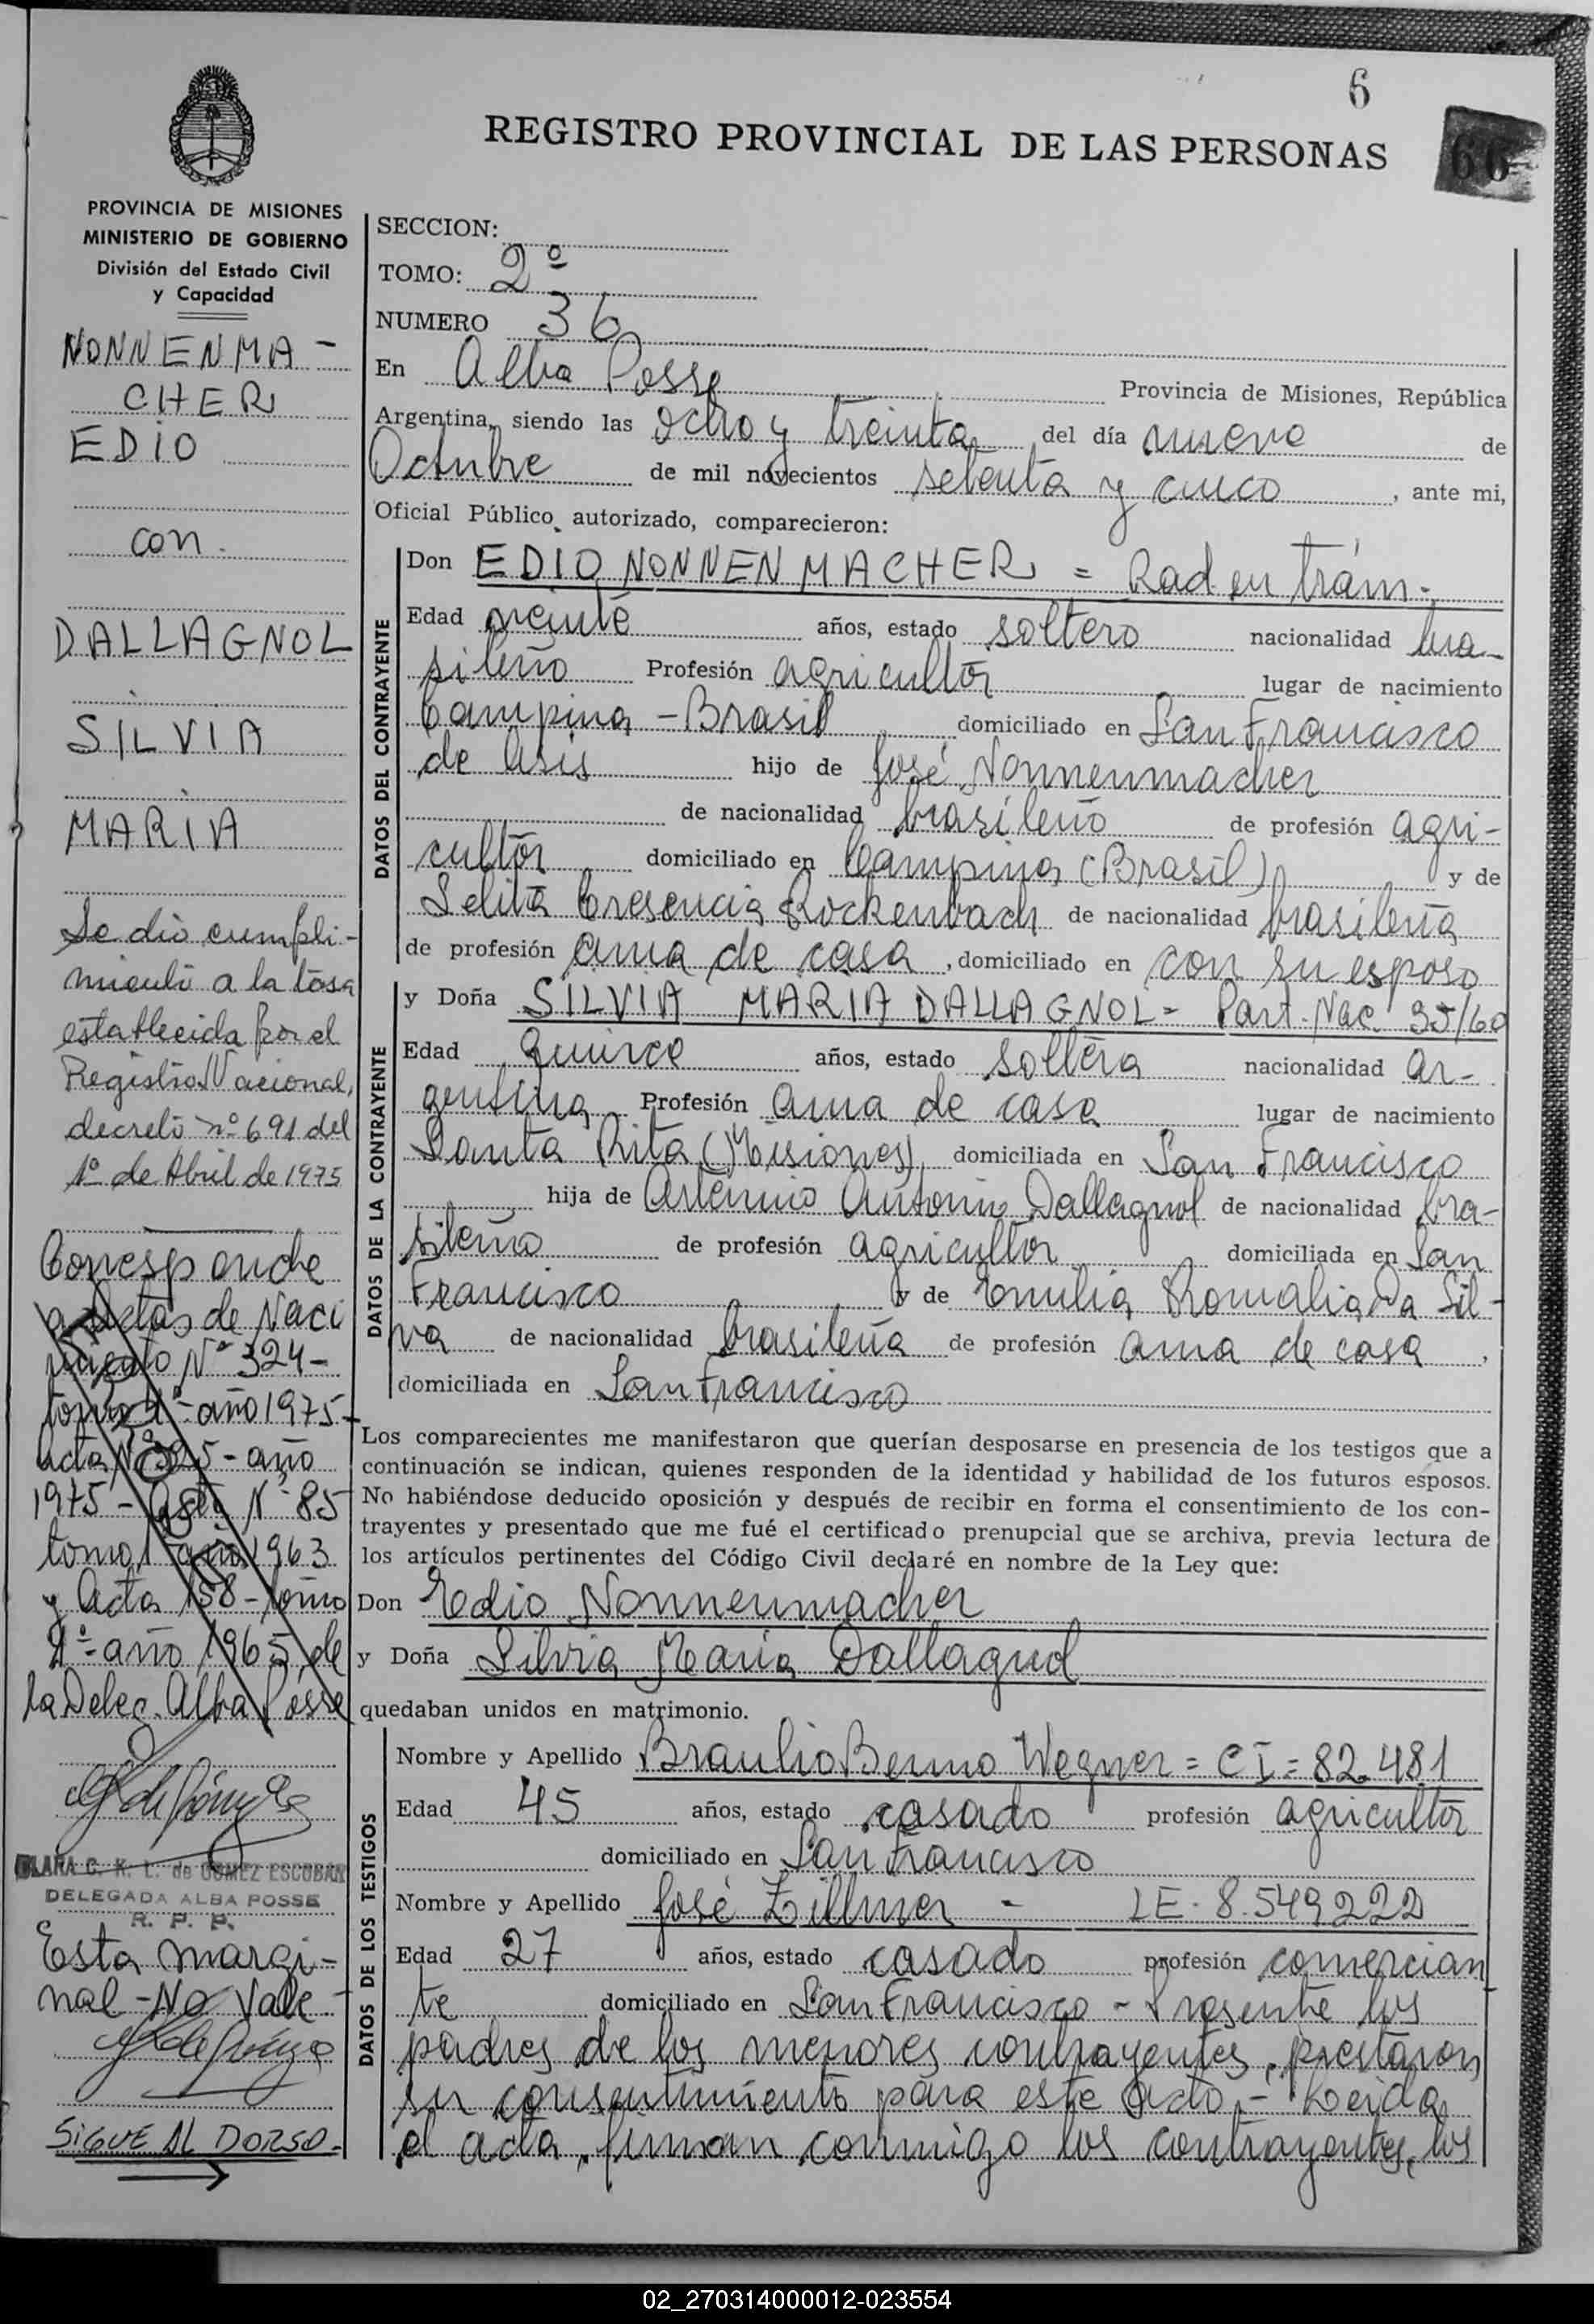 6
REGISTRO PROVINCIAL DE LAS PERSONAS
66
PROVINCIA DE MISIONES
MINISTERIO DE GOBIERNO
División del Estado Civil
y Capacidad
NONNENMA-
CHER
EDIO
con.
DALLAGNOL
SILVIA
MARIA
Se dió cumpli-
miento a la tasa
establecida por el
Registro Nacional,
decreto nº 691 del
1º de Abril de 1975
Corresponde
actas de Naci
miento Nº 324-
tomo 1º- año 1975-
Acta Nº 325- año
1975- Acta Nº 85
tomo 1 año 1963
y Acta 158- tomo
1º- año 1965, de
la Deleg. Alba Posse
CLARA C. K. L. de GOMEZ ESCOBAR
DELEGADA ALBA POSSE
R. P. P.
Esta margi-
nal -No Vale-
SIGUE AL DORSO.
SECCION:
TOMO: 2º
NUMERO 36
En Alba Posse Provincia de Misiones, República
Argentina, siendo las ocho y treinta del día nueve de
Octubre de mil novecientos setenta y cinco, ante mi,
Oficial Público autorizado, comparecieron:
DATOS DEL CONTRAYENTE
Don EDIO NONNENMACHER = Rad en trám.
Edad veinte años, estado soltero nacionalidad bra-
sileño Profesión agricultor lugar de nacimiento
Campina - Brasil domiciliado en San Francisco
de Asis hijo de José Nonnenmacher
de nacionalidad brasileño de profesión agri-
cultor domiciliado en Campina (Brasil) y de
Selita Cresencia Rockenbach de nacionalidad brasileña
de profesión ama de casa, domiciliado en con su esposo
DATOS DE LA CONTRAYENTE
y Doña SILVIA MARIA DALLAGNOL- Part. Nac. 35/60
Edad quince años, estado soltera nacionalidad ar-
gentina Profesión ama de casa lugar de nacimiento
Santa Rita (Misiones), domiciliada en San Francisco
hija de Artemio Antonio Dallagnol de nacionalidad bra-
sileño de profesión agricultor domiciliada en San
Francisco y de Emilia Romalia Da Sil-
va de nacionalidad brasileña de profesión ama de casa,
domiciliada en San Francisco
Los comparecientes me manifestaron que querían desposarse en presencia de los testigos que a
continuación se indican, quienes responden de la identidad y habilidad de los futuros esposos.
No habiéndose deducido oposición y después de recibir en forma el consentimiento de los con-
trayentes y presentado que me fué el certificado prenupcial que se archiva, previa lectura de
los artículos pertinentes del Código Civil declaré en nombre de la Ley que:
Don Edio Nonnenmacher
y Doña Silvia Maria Dallagnol
quedaban unidos en matrimonio.
DATOS DE LOS TESTIGOS
Nombre y Apellido Braulio Benno Wegner = CI = 82.481
Edad 45 años, estado casado profesión agricultor
domiciliado en San Francisco
Nombre y Apellido José Zillmer - LE. 8.549222
Edad 27 años, estado casado profesión comercian
te domiciliado en San Francisco - Presente los
padres de los menores contrayentes, prestaron
su consentimiento para este acto.- Leida
el acta, firman conmigo los contrayentes, los
02_270314000012-023554